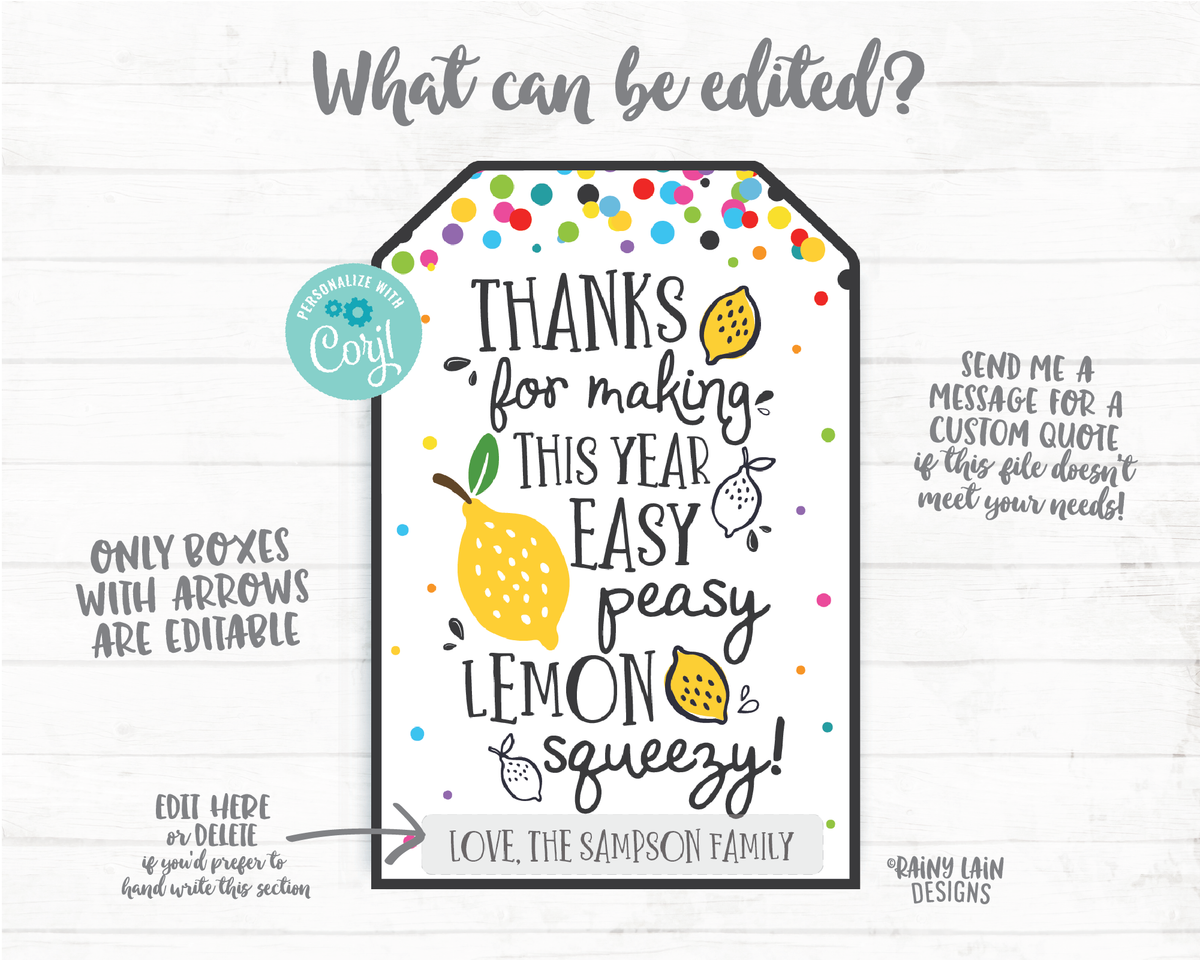 What can be edited?
PERSONALIZE WITH
Corjl
THANKS
for making
THIS YEAR
EASY
peasy
LEMON
squeezy!
LOVE, THE SAMPSON FAMILY
ONLY BOXES
WITH ARROWS
ARE EDITABLE
SEND ME A
MESSAGE FOR A
CUSTOM QUOTE
if this file doesn't
meet your needs!
EDIT HERE
or DELETE
if you'd prefer to
hand write this section
©RAINY LAIN
DESIGNS